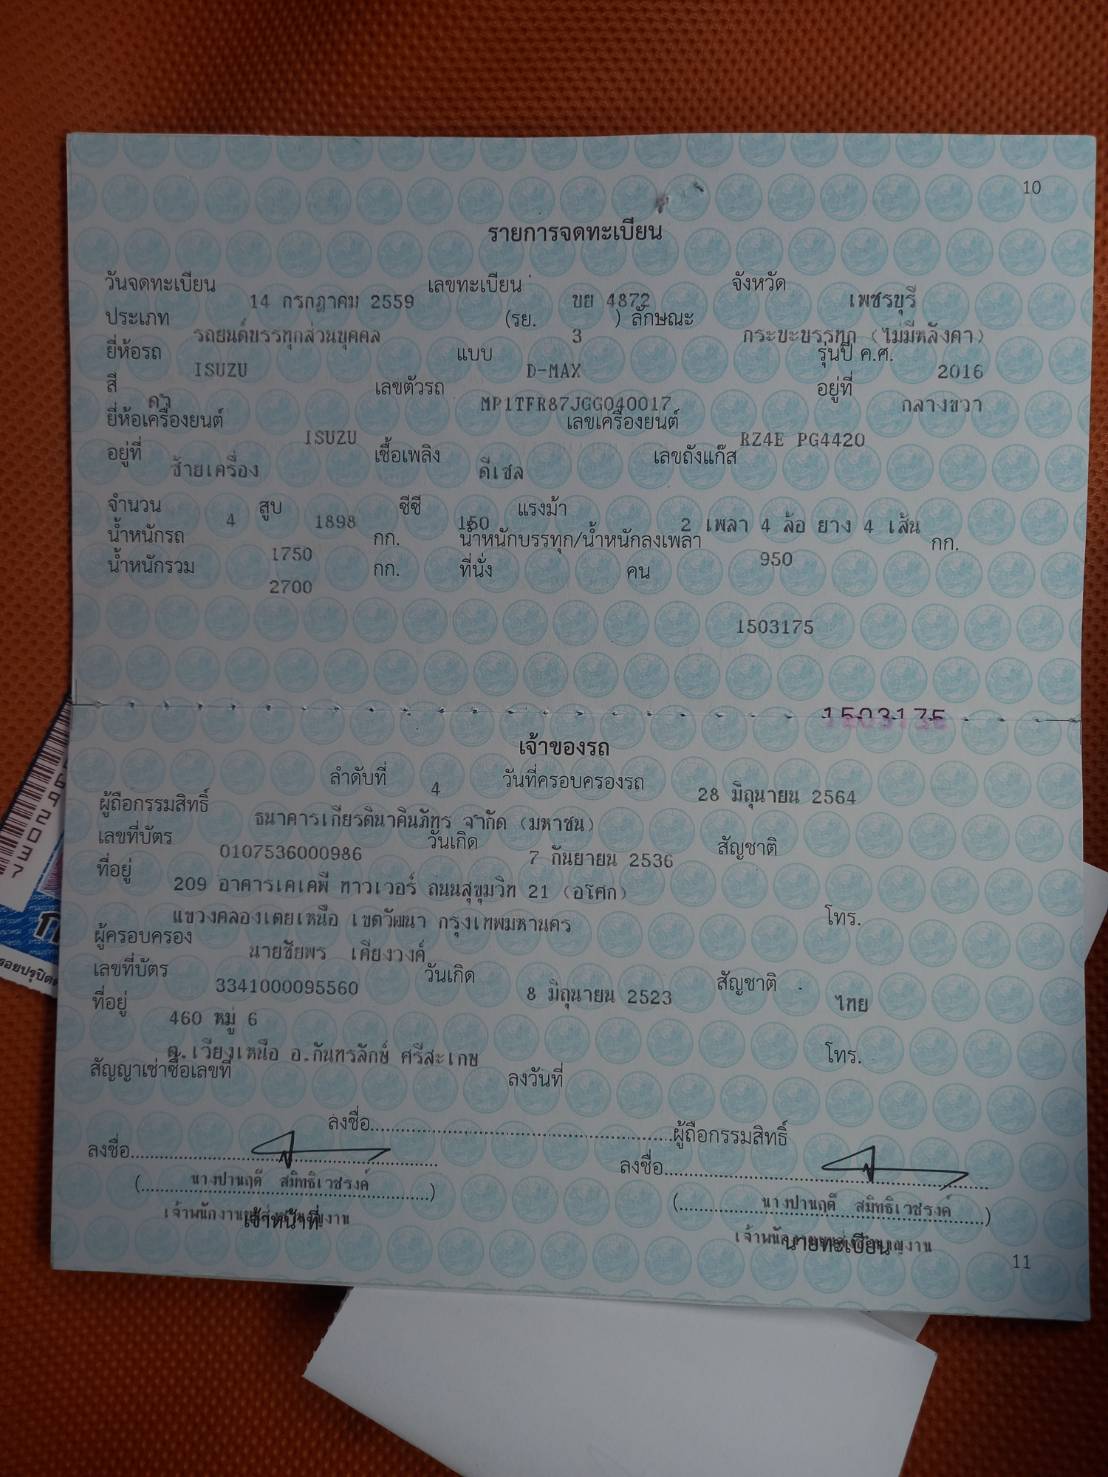 10
รายการจดทะเบียน
วันจดทะเบียน 14 กรกฎาคม 2559 เลขทะเบียน ขย 4872 จังหวัด เพชรบุรี
ประเภท รถยนต์บรรทุกส่วนบุคคล (รย. 3 ) ลักษณะ กระบะบรรทุก (ไม่มีหลังคา)
ยี่ห้อรถ ISUZU แบบ D-MAX รุ่นปี ค.ศ. 2016
สี ดำ เลขตัวรถ MP1TFR87JGG040017 อยู่ที่ กลางขวา
ยี่ห้อเครื่องยนต์ ISUZU เลขเครื่องยนต์ RZ4E PG4420
อยู่ที่ ซ้ายเครื่อง เชื้อเพลิง ดีเซล เลขถังแก๊ส
จำนวน 4 สูบ 1898 ซีซี 150 แรงม้า 2 เพลา 4 ล้อ ยาง 4 เส้น
น้ำหนักรถ 1750 กก. น้ำหนักบรรทุก/น้ำหนักลงเพลา 950 กก.
น้ำหนักรวม 2700 กก. ที่นั่ง คน
1503175
1503175
เจ้าของรถ
ลำดับที่ 4 วันที่ครอบครองรถ 28 มิถุนายน 2564
ผู้ถือกรรมสิทธิ์ ธนาคารเกียรตินาคินภัทร จำกัด (มหาชน)
เลขที่บัตร 0107536000986 วันเกิด 7 กันยายน 2536 สัญชาติ
ที่อยู่ 209 อาคารเคเคพี ทาวเวอร์ ถนนสุขุมวิท 21 (อโศก)
แขวงคลองเตยเหนือ เขตวัฒนา กรุงเทพมหานคร โทร.
ผู้ครอบครอง นายชัยพร เคียงวงค์
เลขที่บัตร 3341000095560 วันเกิด 8 มิถุนายน 2523 สัญชาติ ไทย
ที่อยู่ 460 หมู่ 6
ต.เวียงเหนือ อ.กันทรลักษ์ ศรีสะเกษ โทร.
สัญญาเช่าซื้อเลขที่ ลงวันที่
ลงชื่อ ผู้ถือกรรมสิทธิ์
ลงชื่อ ลงชื่อ
(นางปานฤดี สมิทธิเวชรงค์) (นางปานฤดี สมิทธิเวชรงค์)
เจ้าหน้าที่ นายทะเบียน
11